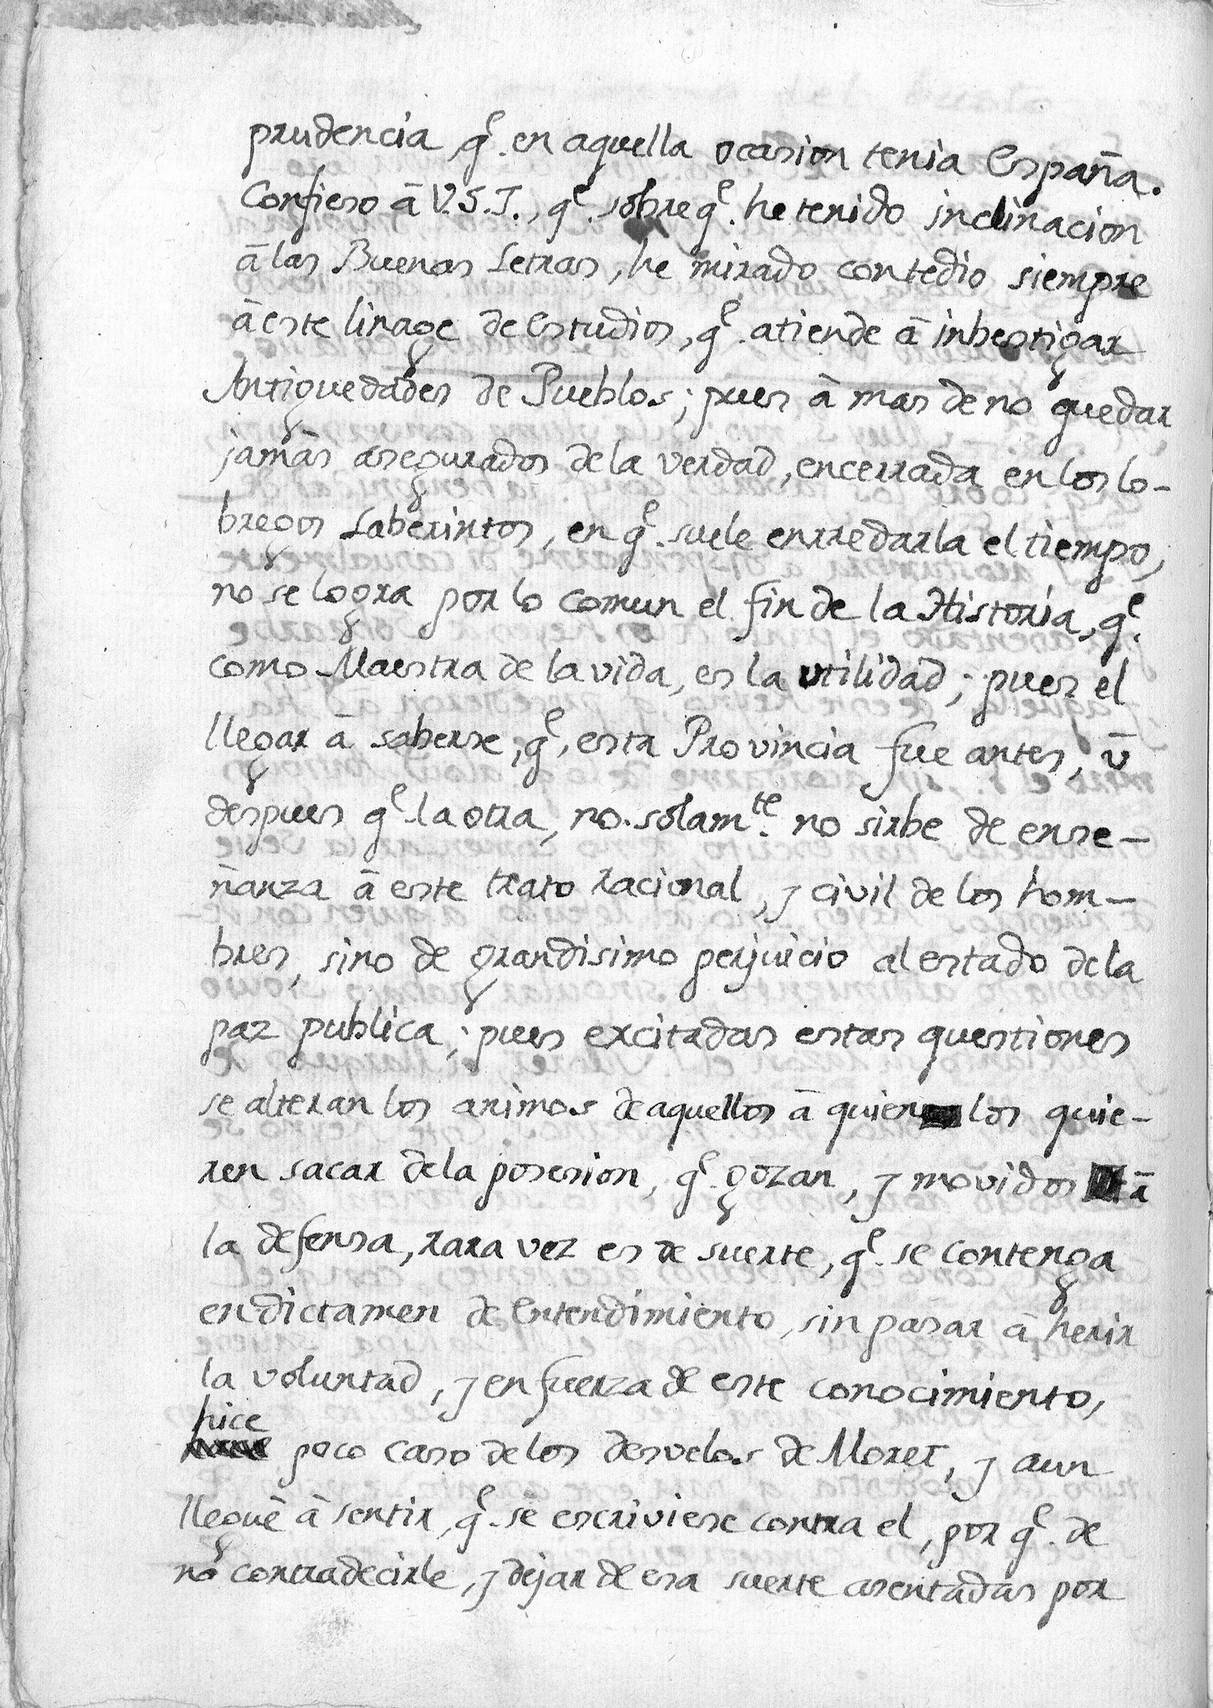 prudencia, q.e en aquella ocasion tenia España.
Confieso â V.S.I., q.e sobre q.e he tenido inclinacion
â las Buenas Letras, he mirado con tedio siempre
â este linage de Estudios, q.e atiende â inbestigar
Antiguedades de Pueblos; pues â mas de no quedar
jamâs asegurados de la verdad, encerrada en los lo-
bregos Laberintos, en q.e suele enrredarla el tiempo,
no se logra por lo comun el fin de la Historia, q.e
como Maestra de la vida, es la utilidad; pues el
llegar â saberse, q.e esta Provincia fue antes, û
despues q.e la otra, no solam.te no sirbe de ense-
ñanza â este trato racional, y civil de los hom-
bres, sino de grandisimo perjuicio al estado de la
paz publica; pues excitadas estas questiones
se alteran los animos de aquellos â quien los quie-
ren sacar de la posesion, q.e gozan, y movidos â
la defensa, rara vez es de suerte, q.e se contenga
en dictamen de Entendimiento, sin pasar â herir
la voluntad, y en fuerza de este conocimiento,
hice poco caso de los desvelos de Moret, y aun
lleguê â sentir, q.e se escriviese contra el, por q.e de
no contradecirle, y dejar de esa suerte asentadas por